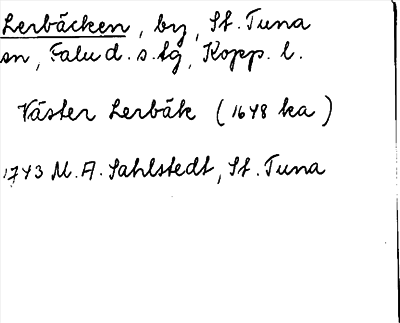 Lerbäcken, by, St. Tuna
sn, Falu d.s.tg, Kopp. l.
Väster Lerbäk (1648 ka)
1743 M.A. Sahlstedt, St. Tuna